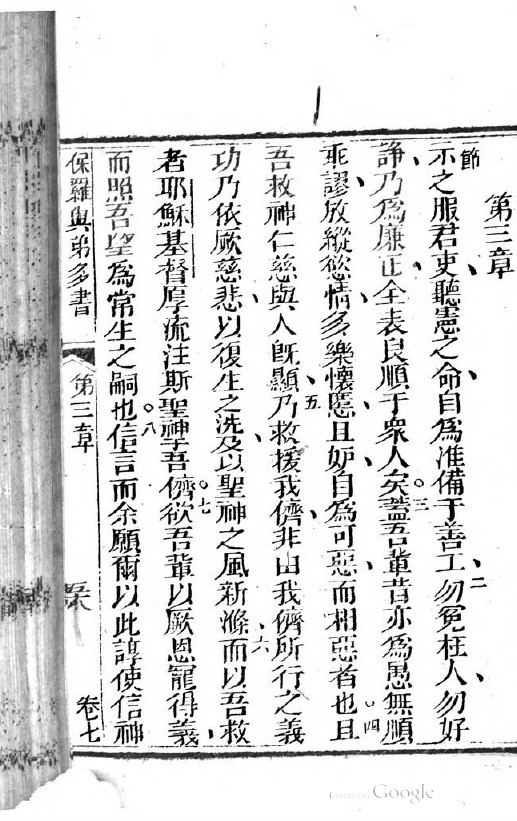 第三章
節示之服君吏聽憲之命自為准備于善工二勿冤枉人勿好
諍乃為廉正全表良順于衆人矣三蓋吾輩昔亦為愚無順四
乖謬放縱慾情多樂懷慝且妒自為可惡而相惡者也且
吾救神仁慈與人既顯五乃救援我儕非由我儕所行之義六
功乃依厥慈悲以復生之洗及以聖神之風新滌而以吾救
者耶穌基督厚流注斯聖神于吾儕七欲吾輩以厥恩寵得義
而照吾望為常生之嗣也八信言而余願爾以此諄使信神
保羅與弟多書
第三章
卷七
Google